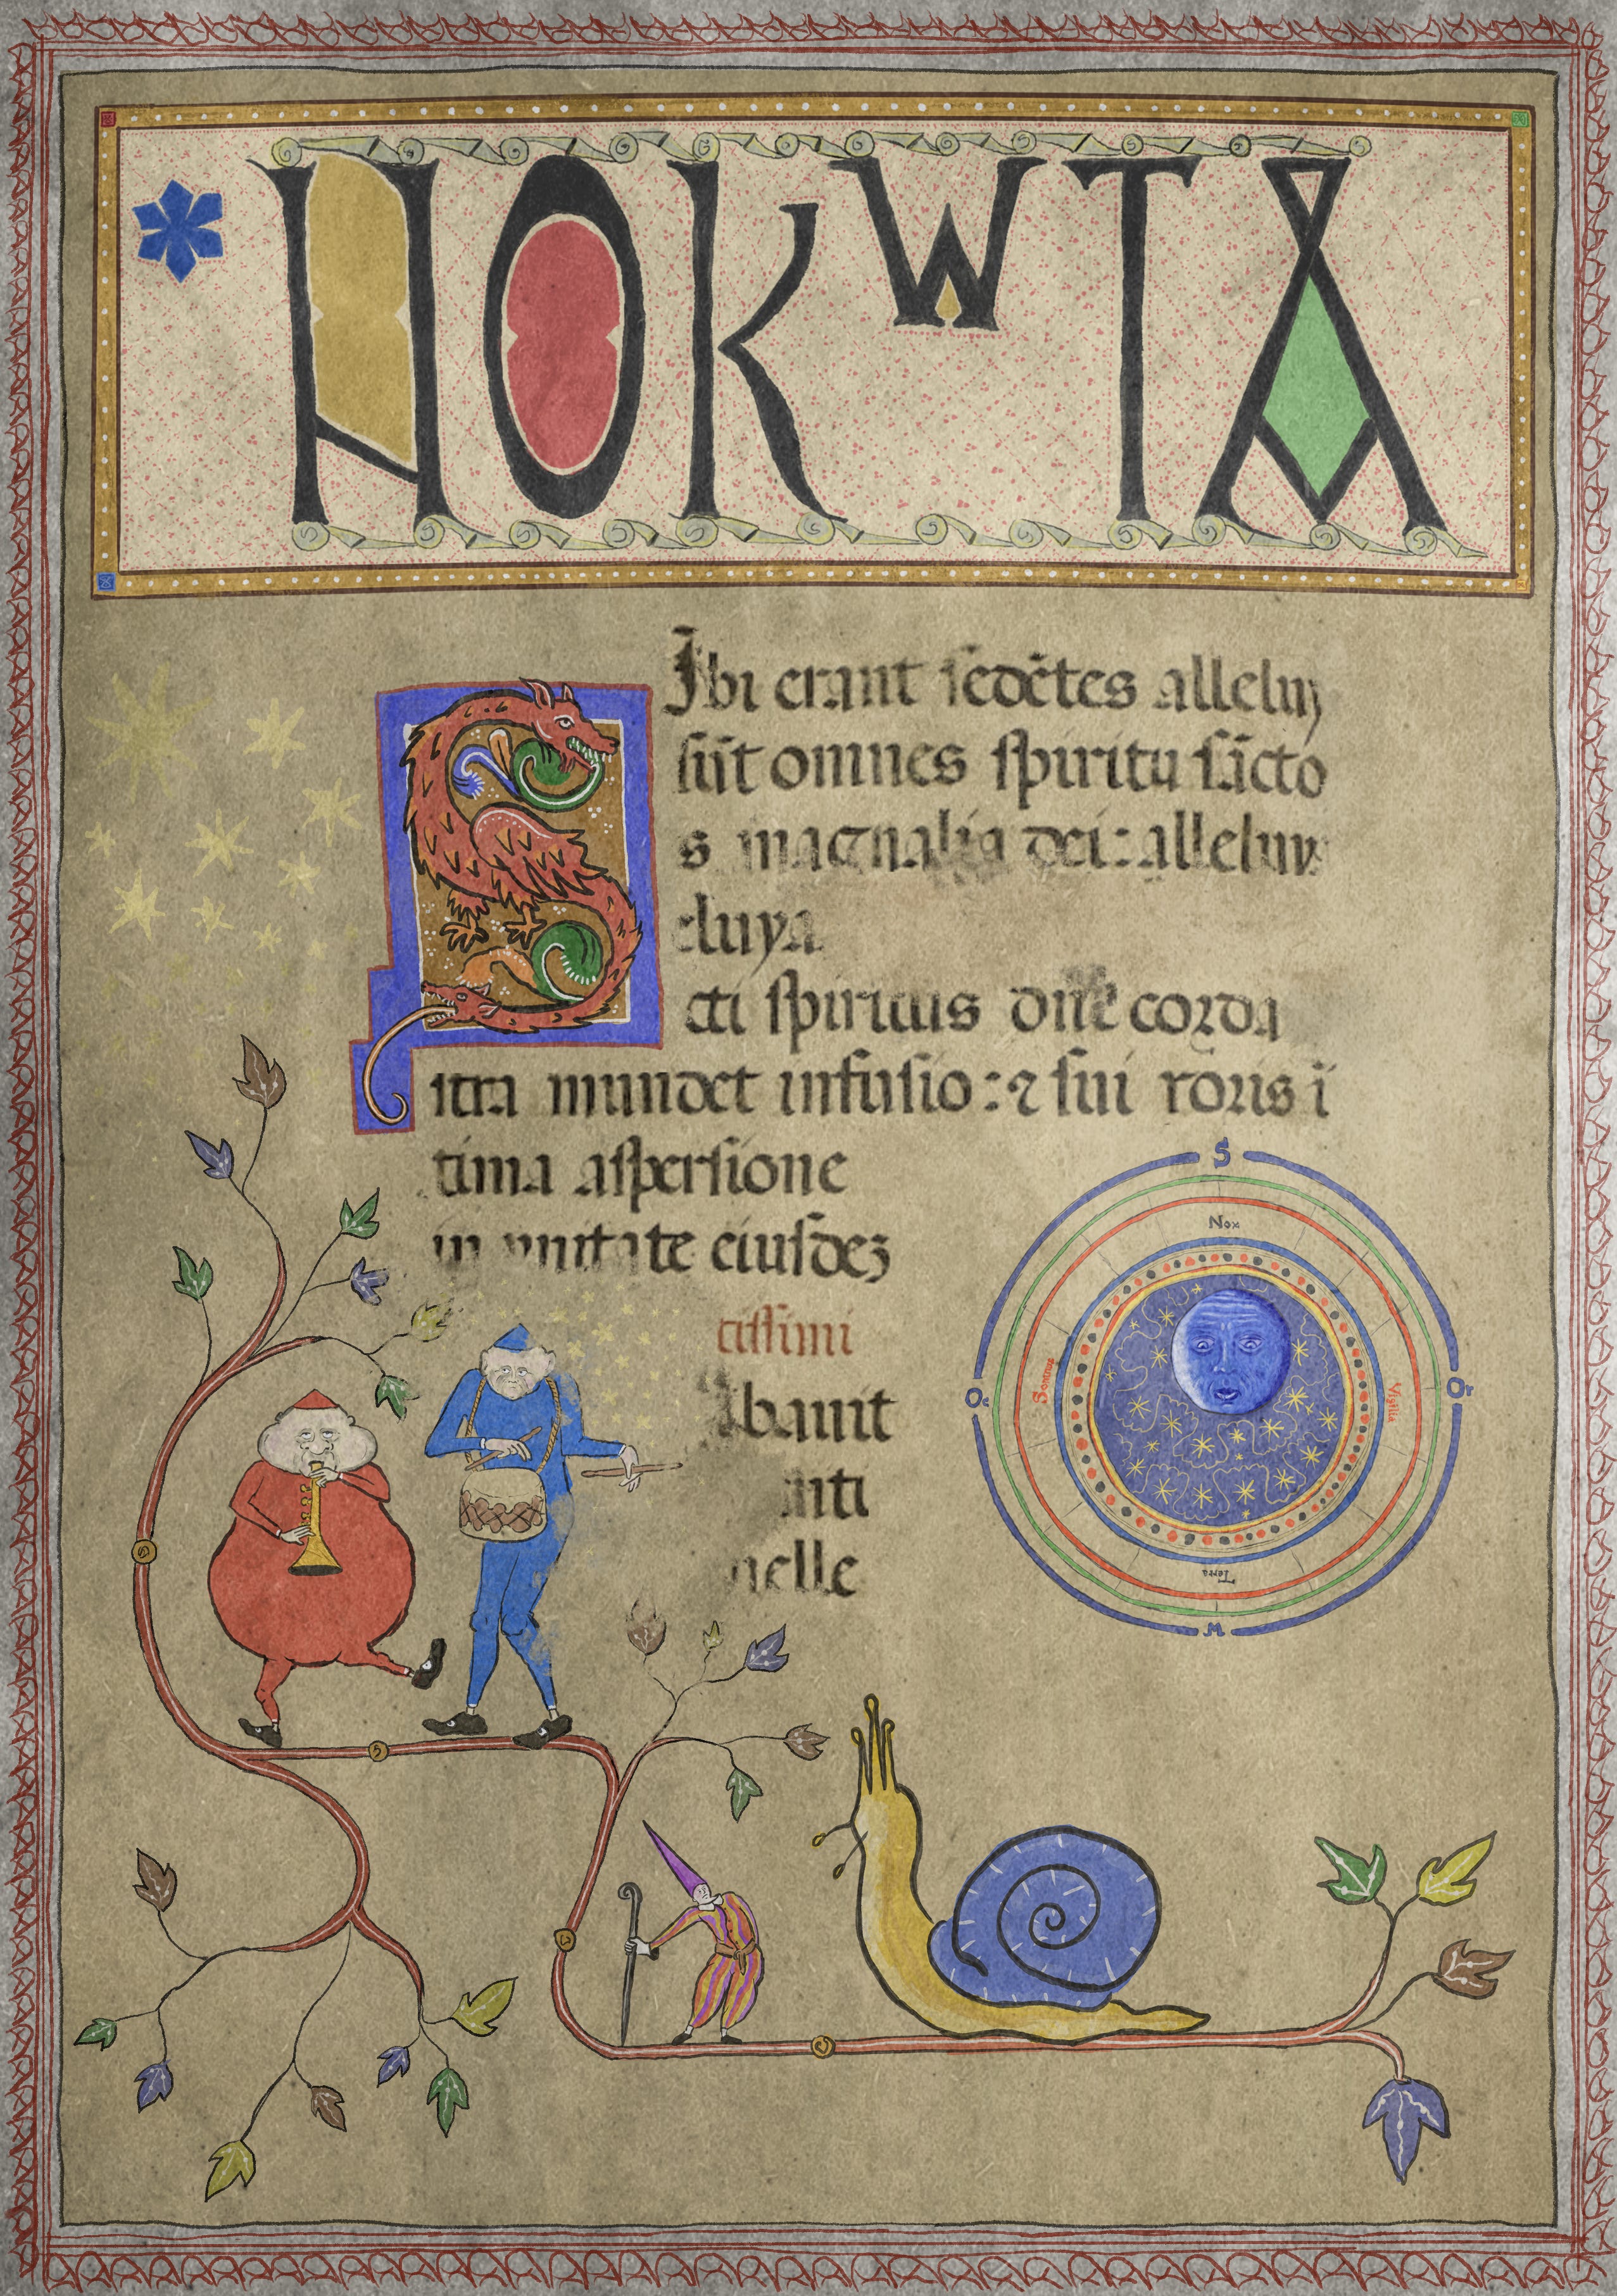 NOKWTA
Ibi erant sedētes alleluy
sūt omnes spiritu sācto
s magnalia dei: alleluy
eluya
cti spiritus dñe corda
mundet infusio: ⁊ sui roris ī
tima aspersione
in unitate eiusdeꝫ
ctissimi
bauit
elle
S
Nox
Oc
Somnus
Vigilia
Or
Terra
M